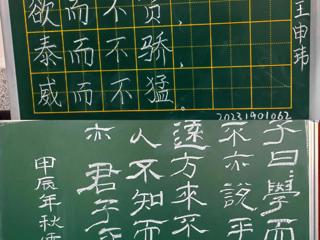 欲而不贪，
泰而不骄，
威而不猛。
王申玮
20231901062
子曰：學而
不亦說乎
遠方來不
人不知而
亦君子
甲辰年秋